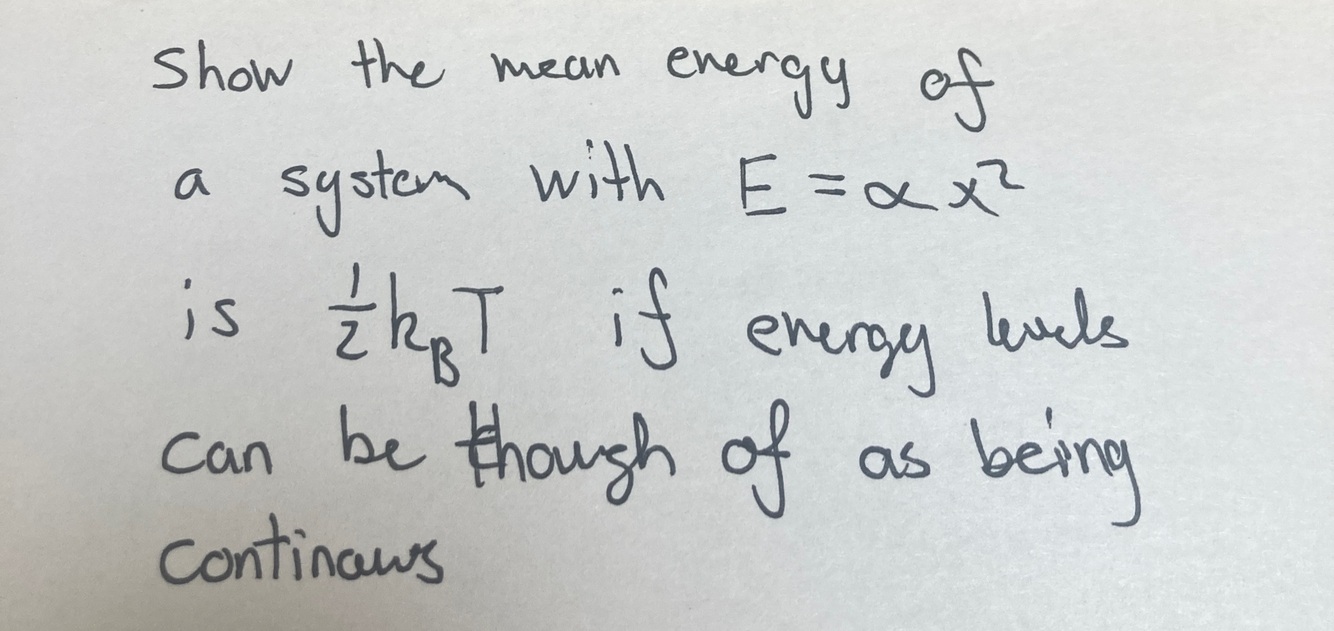 Show the mean energy of
a system with E = αx²
is ½k_BT if energy levels
can be though of as being
continuous